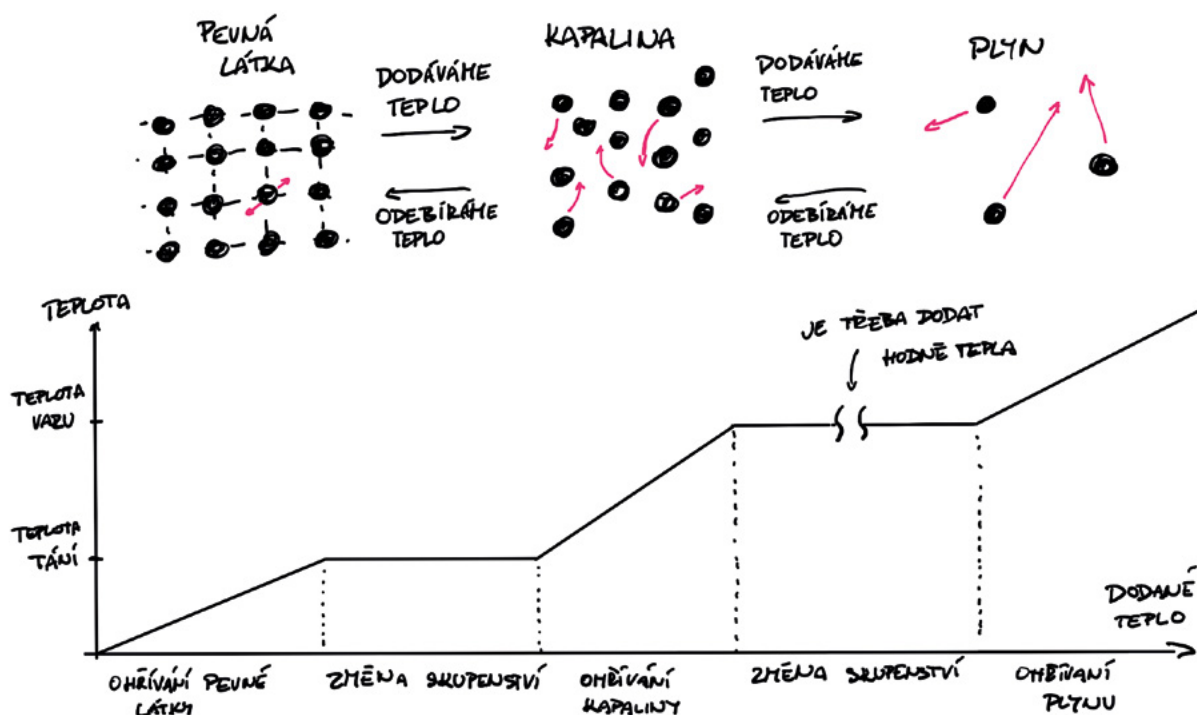 PEVNÁ
LÁTKA
DODÁVÁME
TEPLO
ODEBÍRÁME
TEPLO
KAPALINA
DODÁVÁME
TEPLO
ODEBÍRÁME
TEPLO
PLYN
TEPLOTA
TEPLOTA
VARU
TEPLOTA
TÁNÍ
JE TŘEBA DODAT
HODNĚ TEPLA
DODANÉ
TEPLO
OHŘÍVÁNÍ PEVNÉ
LÁTKY
ZMĚNA SKUPENSTVÍ
OHŘÍVÁNÍ
KAPALINY
ZMĚNA SKUPENSTVÍ
OHŘÍVÁNÍ
PLYNU